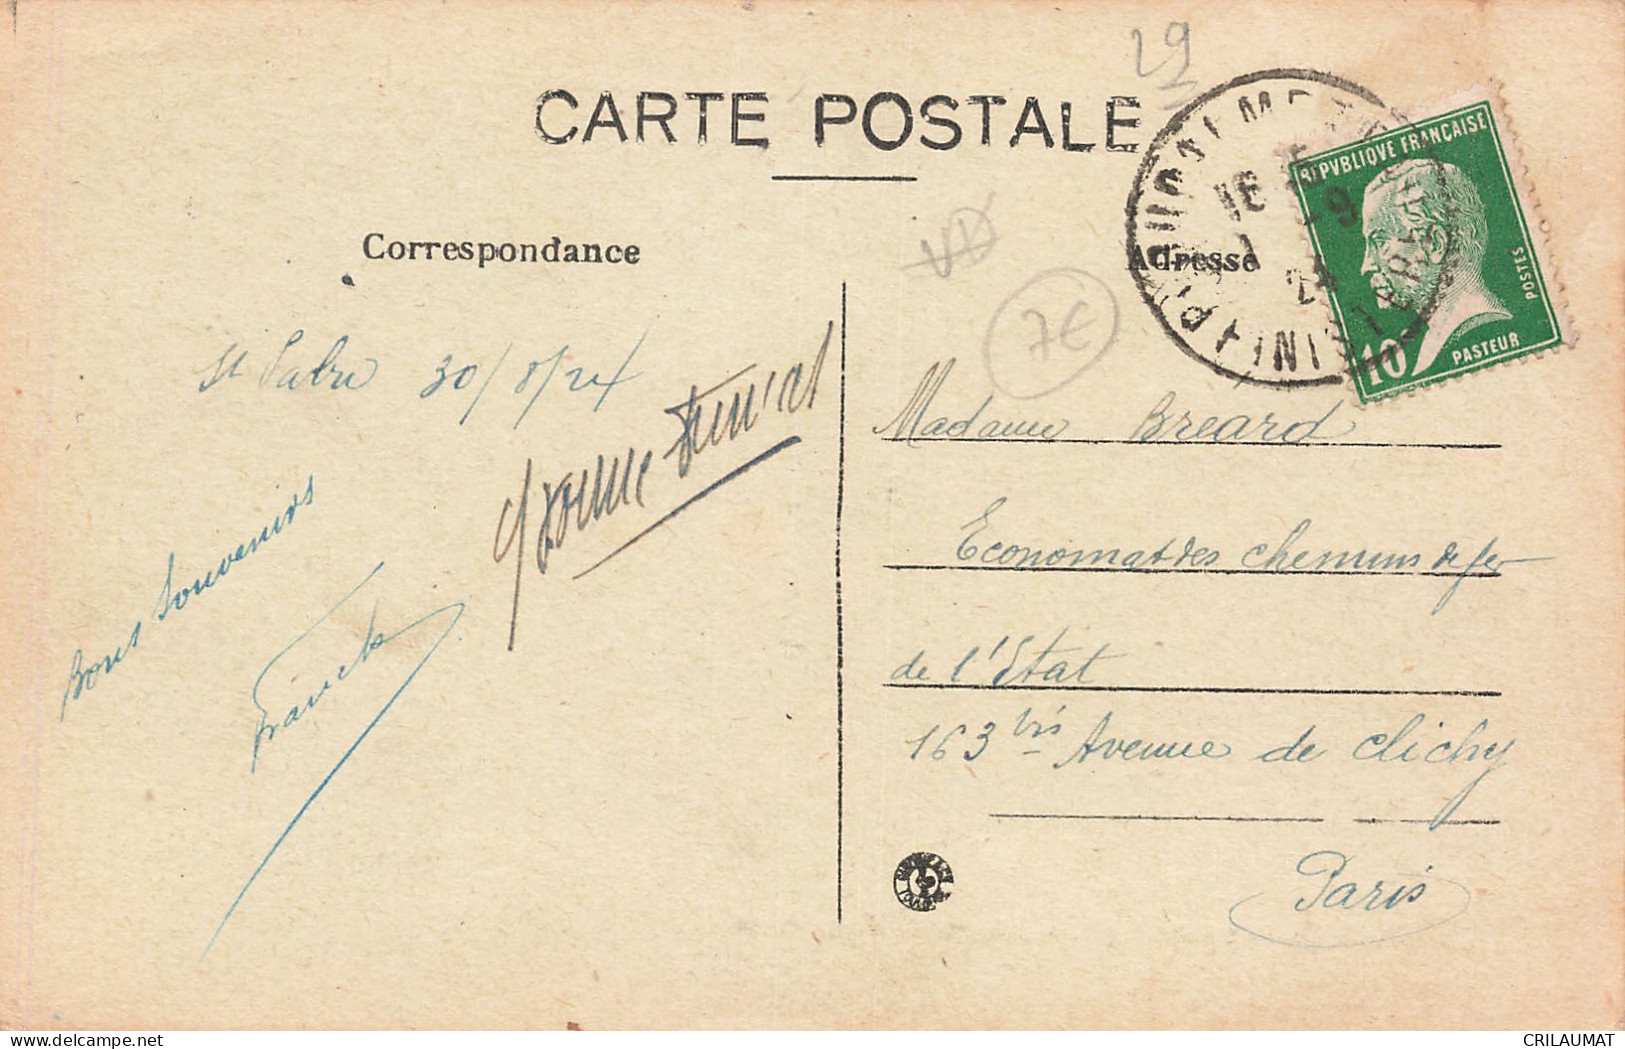 29
CARTE POSTALE
REPVBLIQVE FRANÇAISE
POSTES
10
PASTEUR
16
Correspondance
Adresse
7€
St Cabre 30/8/24
Madame Breard
Economat des chemins de fer
de l'Etat
163 bis Avenue de Clichy
Paris
Bons Souvenirs
Yvonne
CRILAUMAT